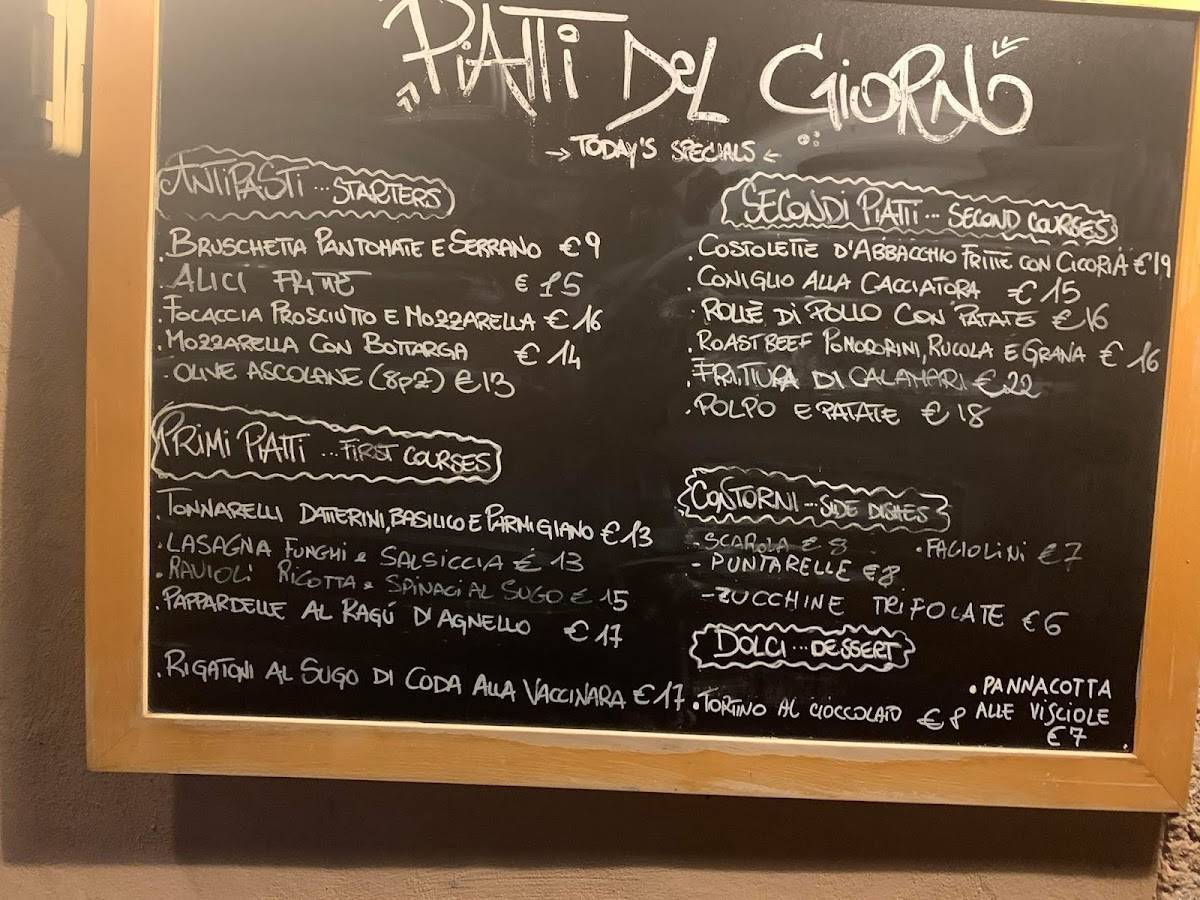 PIATTI DEL GIORNO
→ TODAY'S SPECIALS ←
ANTIPASTI ... STARTERS
. BRUSCHETTA PANTOMATE E SERRANO €9
. ALICI FRITTE € 15
. FOCACCIA PROSCIUTTO E MOZZARELLA €16
. MOZZARELLA CON BOTTARGA €14
. OLIVE ASCOLANE (8pz) €13
PRIMI PIATTI ... FIRST COURSES
. TONNARELLI DATTERINI, BASILICO E PARMIGIANO €13
. LASAGNA FUNGHI e SALSICCIA € 13
. RAVIOLI RICOTTA e SPINACI AL SUGO € 15
. PAPPARDELLE AL RAGÚ D'AGNELLO €17
. RIGATONI AL SUGO DI CODA ALLA VACCINARA €17
SECONDI PIATTI ... SECOND COURSES
. COSTOLETTE D'ABBACCHIO FRITTE CON CICORIA €19
. CONIGLIO ALLA CACCIATORA €15
. ROLLÈ DI POLLO CON PATATE €16
. ROASTBEEF POMODORINI, RUCOLA E GRANA € 16
. FRITTURA DI CALAMARI €22
. POLPO E PATATE €18
CONTORNI ... SIDE DISHES
- SCAROLA € 8
. FAGIOLINI €7
- PUNTARELLE €8
- ZUCCHINE TRIFOLATE €6
DOLCI ... DESSERT
. TORTINO AL CIOCCOLATO €8
. PANNACOTTA
ALLE VISCIOLE
€7